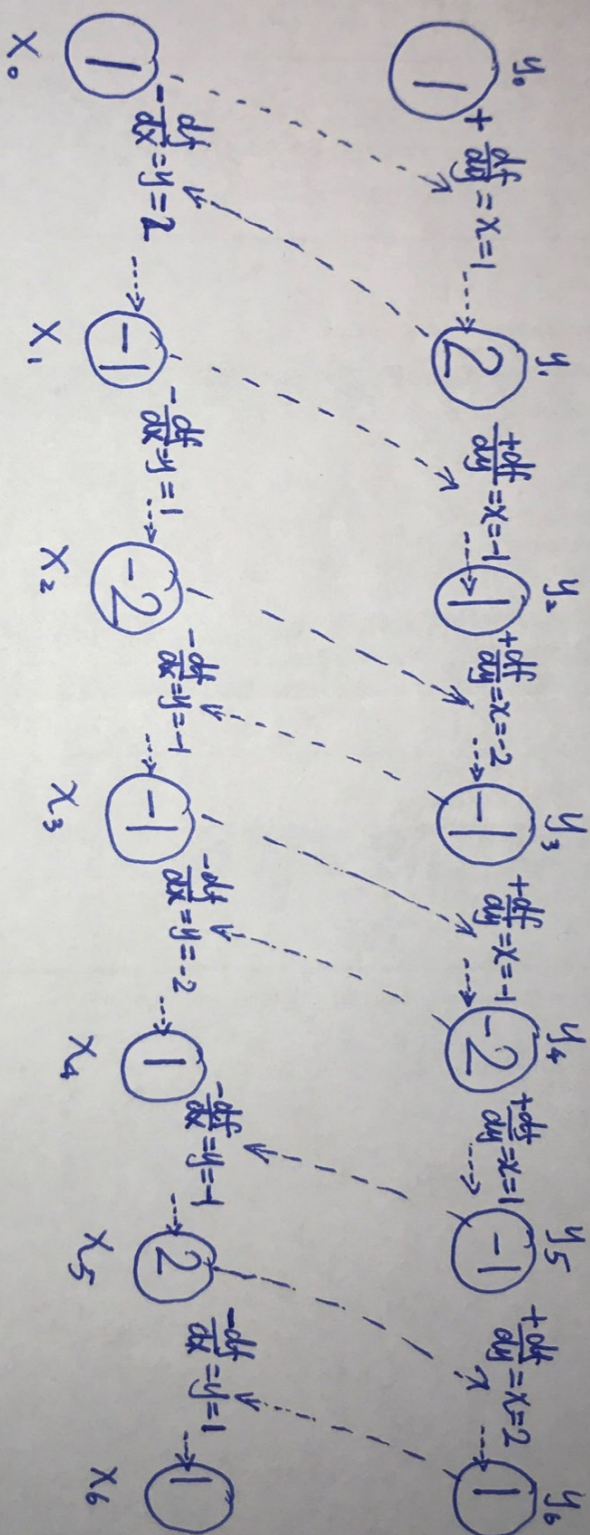 y₀ y₁ y₂ y₃ y₄ y₅ y₆
1 + df/dy = x = 1 2 + df/dy = x = -1 1 + df/dy = x = -2 -1 + df/dy = x = -1 -2 + df/dy = x = 1 -1 + df/dy = x = 2 1
1 - df/dx = y = 2 -1 - df/dx = y = 1 -2 - df/dx = y = -1 -1 - df/dx = y = -2 1 - df/dx = y = -1 2 - df/dx = y = 1 1
x₀ x₁ x₂ x₃ x₄ x₅ x₆